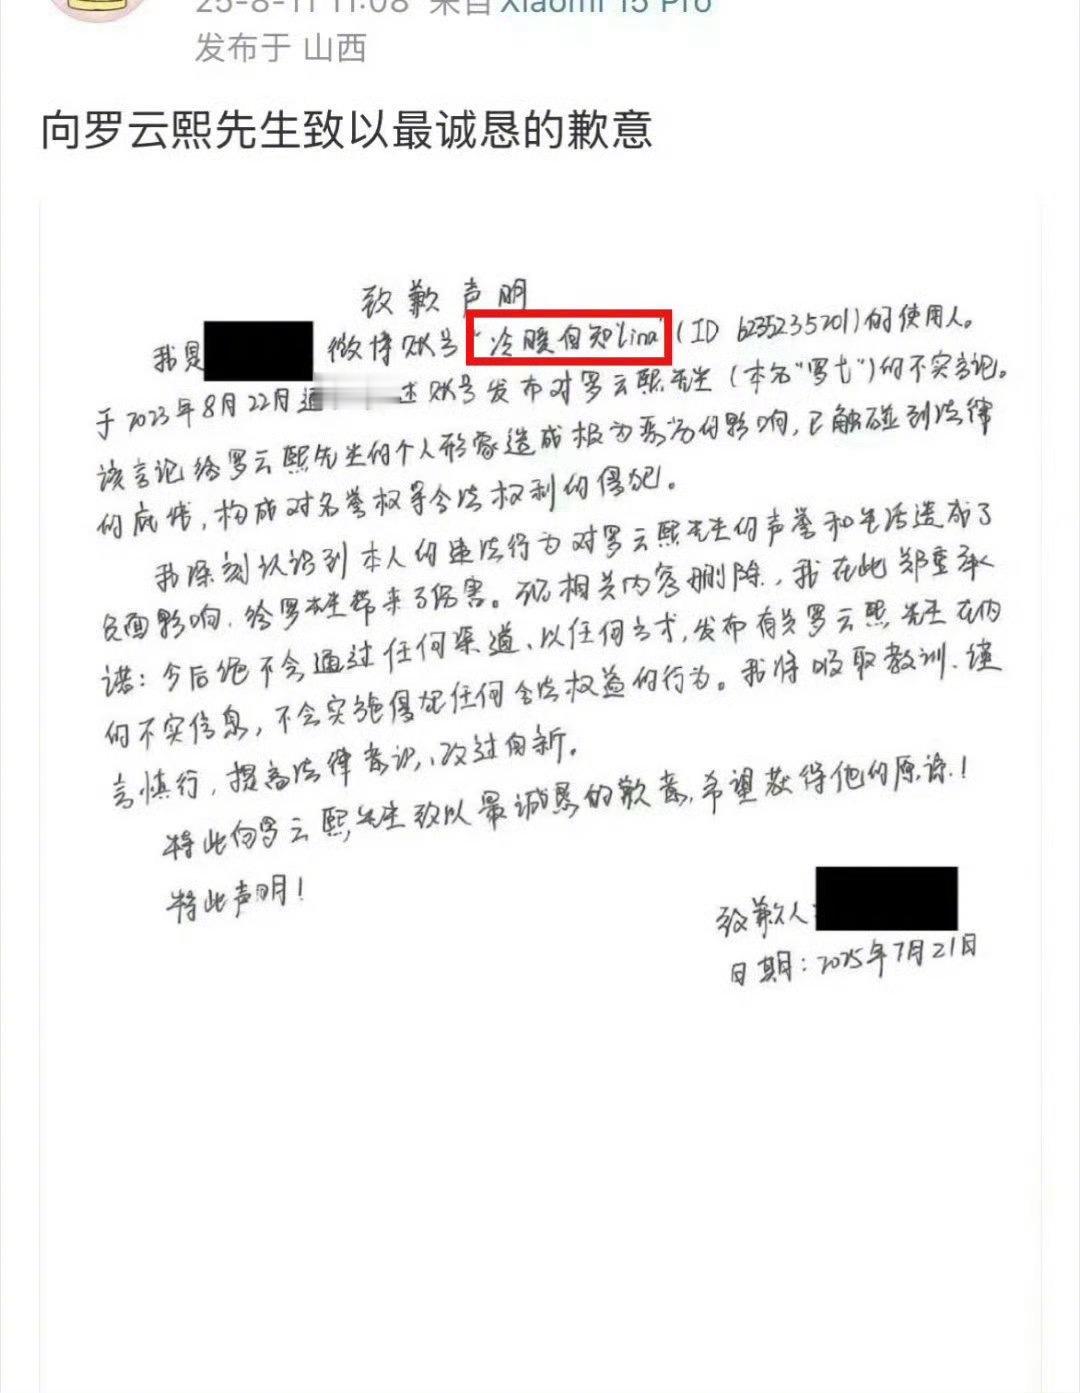 25-8-11 11:08 来自 Xiaomi 15 Pro
发布于 山西
向罗云熙先生致以最诚恳的歉意
致歉声明
我是 微博账号"冷暖自知lina"(ID 6235235201)的使用人。
于2023年8月22月通 述账号发布对罗云熙先生(本名"罗弋")的不实言论。
该言论给罗云熙先生的个人形象造成极为恶劣的影响,已触碰到法律
的底线,构成对名誉权等合法权利的侵犯。
我深刻认识到本人的违法行为对罗云熙先生的声誉和生活造成了
负面影响,给罗先生带来了伤害。现相关内容删除,我在此郑重承
诺:今后绝不会通过任何渠道、以任何方式,发布有关罗云熙先生在内
的不实信息,不会实施侵犯任何合法权益的行为。我将吸取教训、谨
言慎行,提高法律意识、改过自新。
特此向罗云熙先生致以最诚恳的歉意,希望获得他的原谅!
特此声明!
致歉人:
日期:2025年7月21日